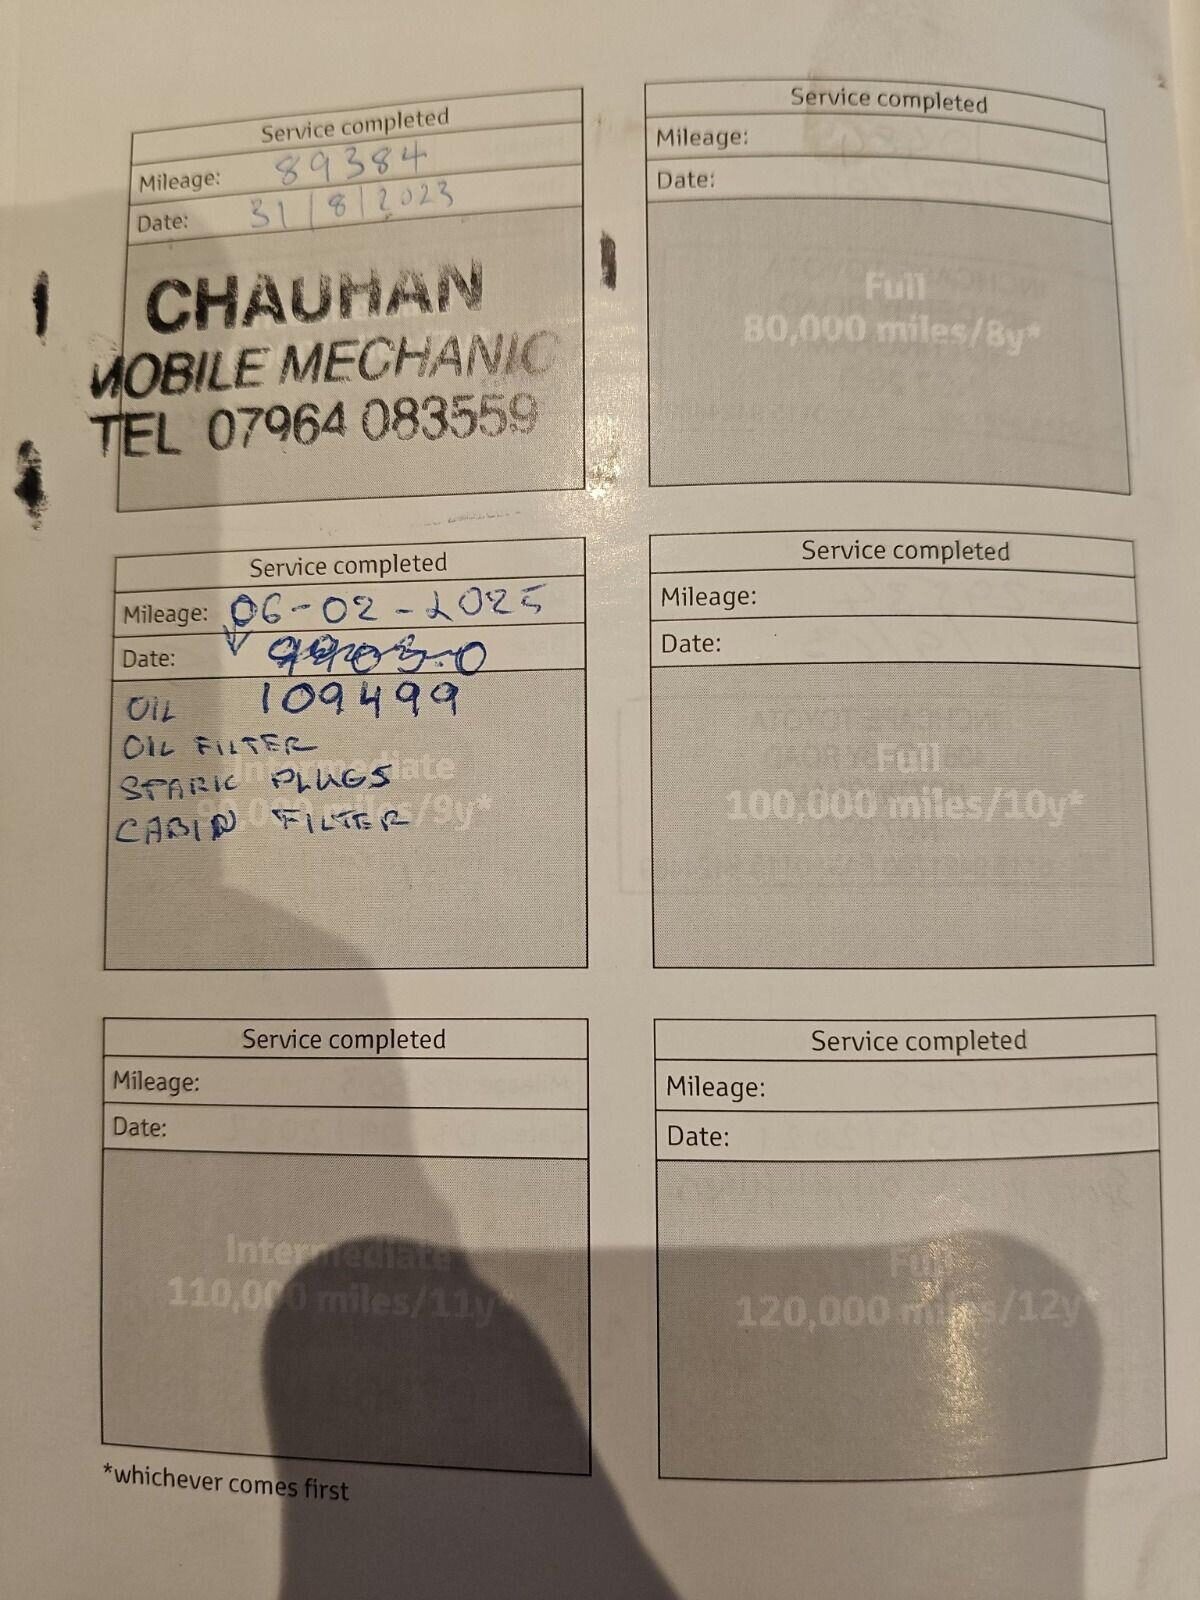 Service completed
Mileage: 89384
Date: 31/8/2023
CHAUHAN
MOBILE MECHANIC
TEL 07964 083559
Service completed
Mileage:
Date:
Full
80,000 miles/8y*
Service completed
Mileage: 06-02-2025
Date:
OIL 109499
OIL FILTER
SPARK PLUGS
CABIN FILTER
Intermediate
90,000 miles/9y*
Service completed
Mileage:
Date:
Full
100,000 miles/10y*
Service completed
Mileage:
Date:
Intermediate
110,000 miles/11y*
Service completed
Mileage:
Date:
Full
120,000 miles/12y*
*whichever comes first